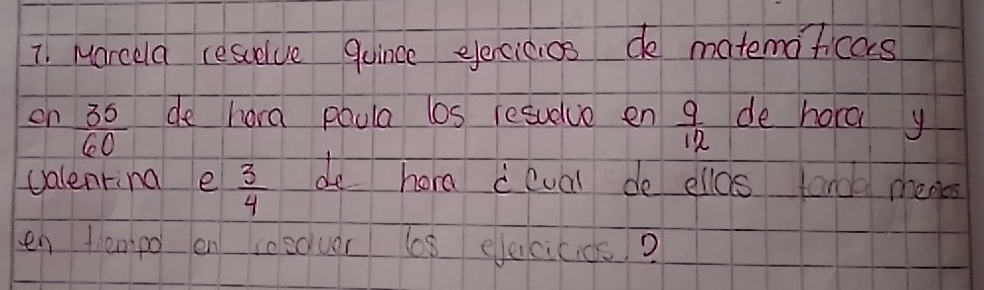 7. Marcela resuelve quince ejercicios de matemáticas
en 35/60 de hora paula los resuelve en 9/12 de hora y
valentina e 3/4 de hora ¿Cual de ellas tarda menos
en tiempo en resolver los ejercicios?